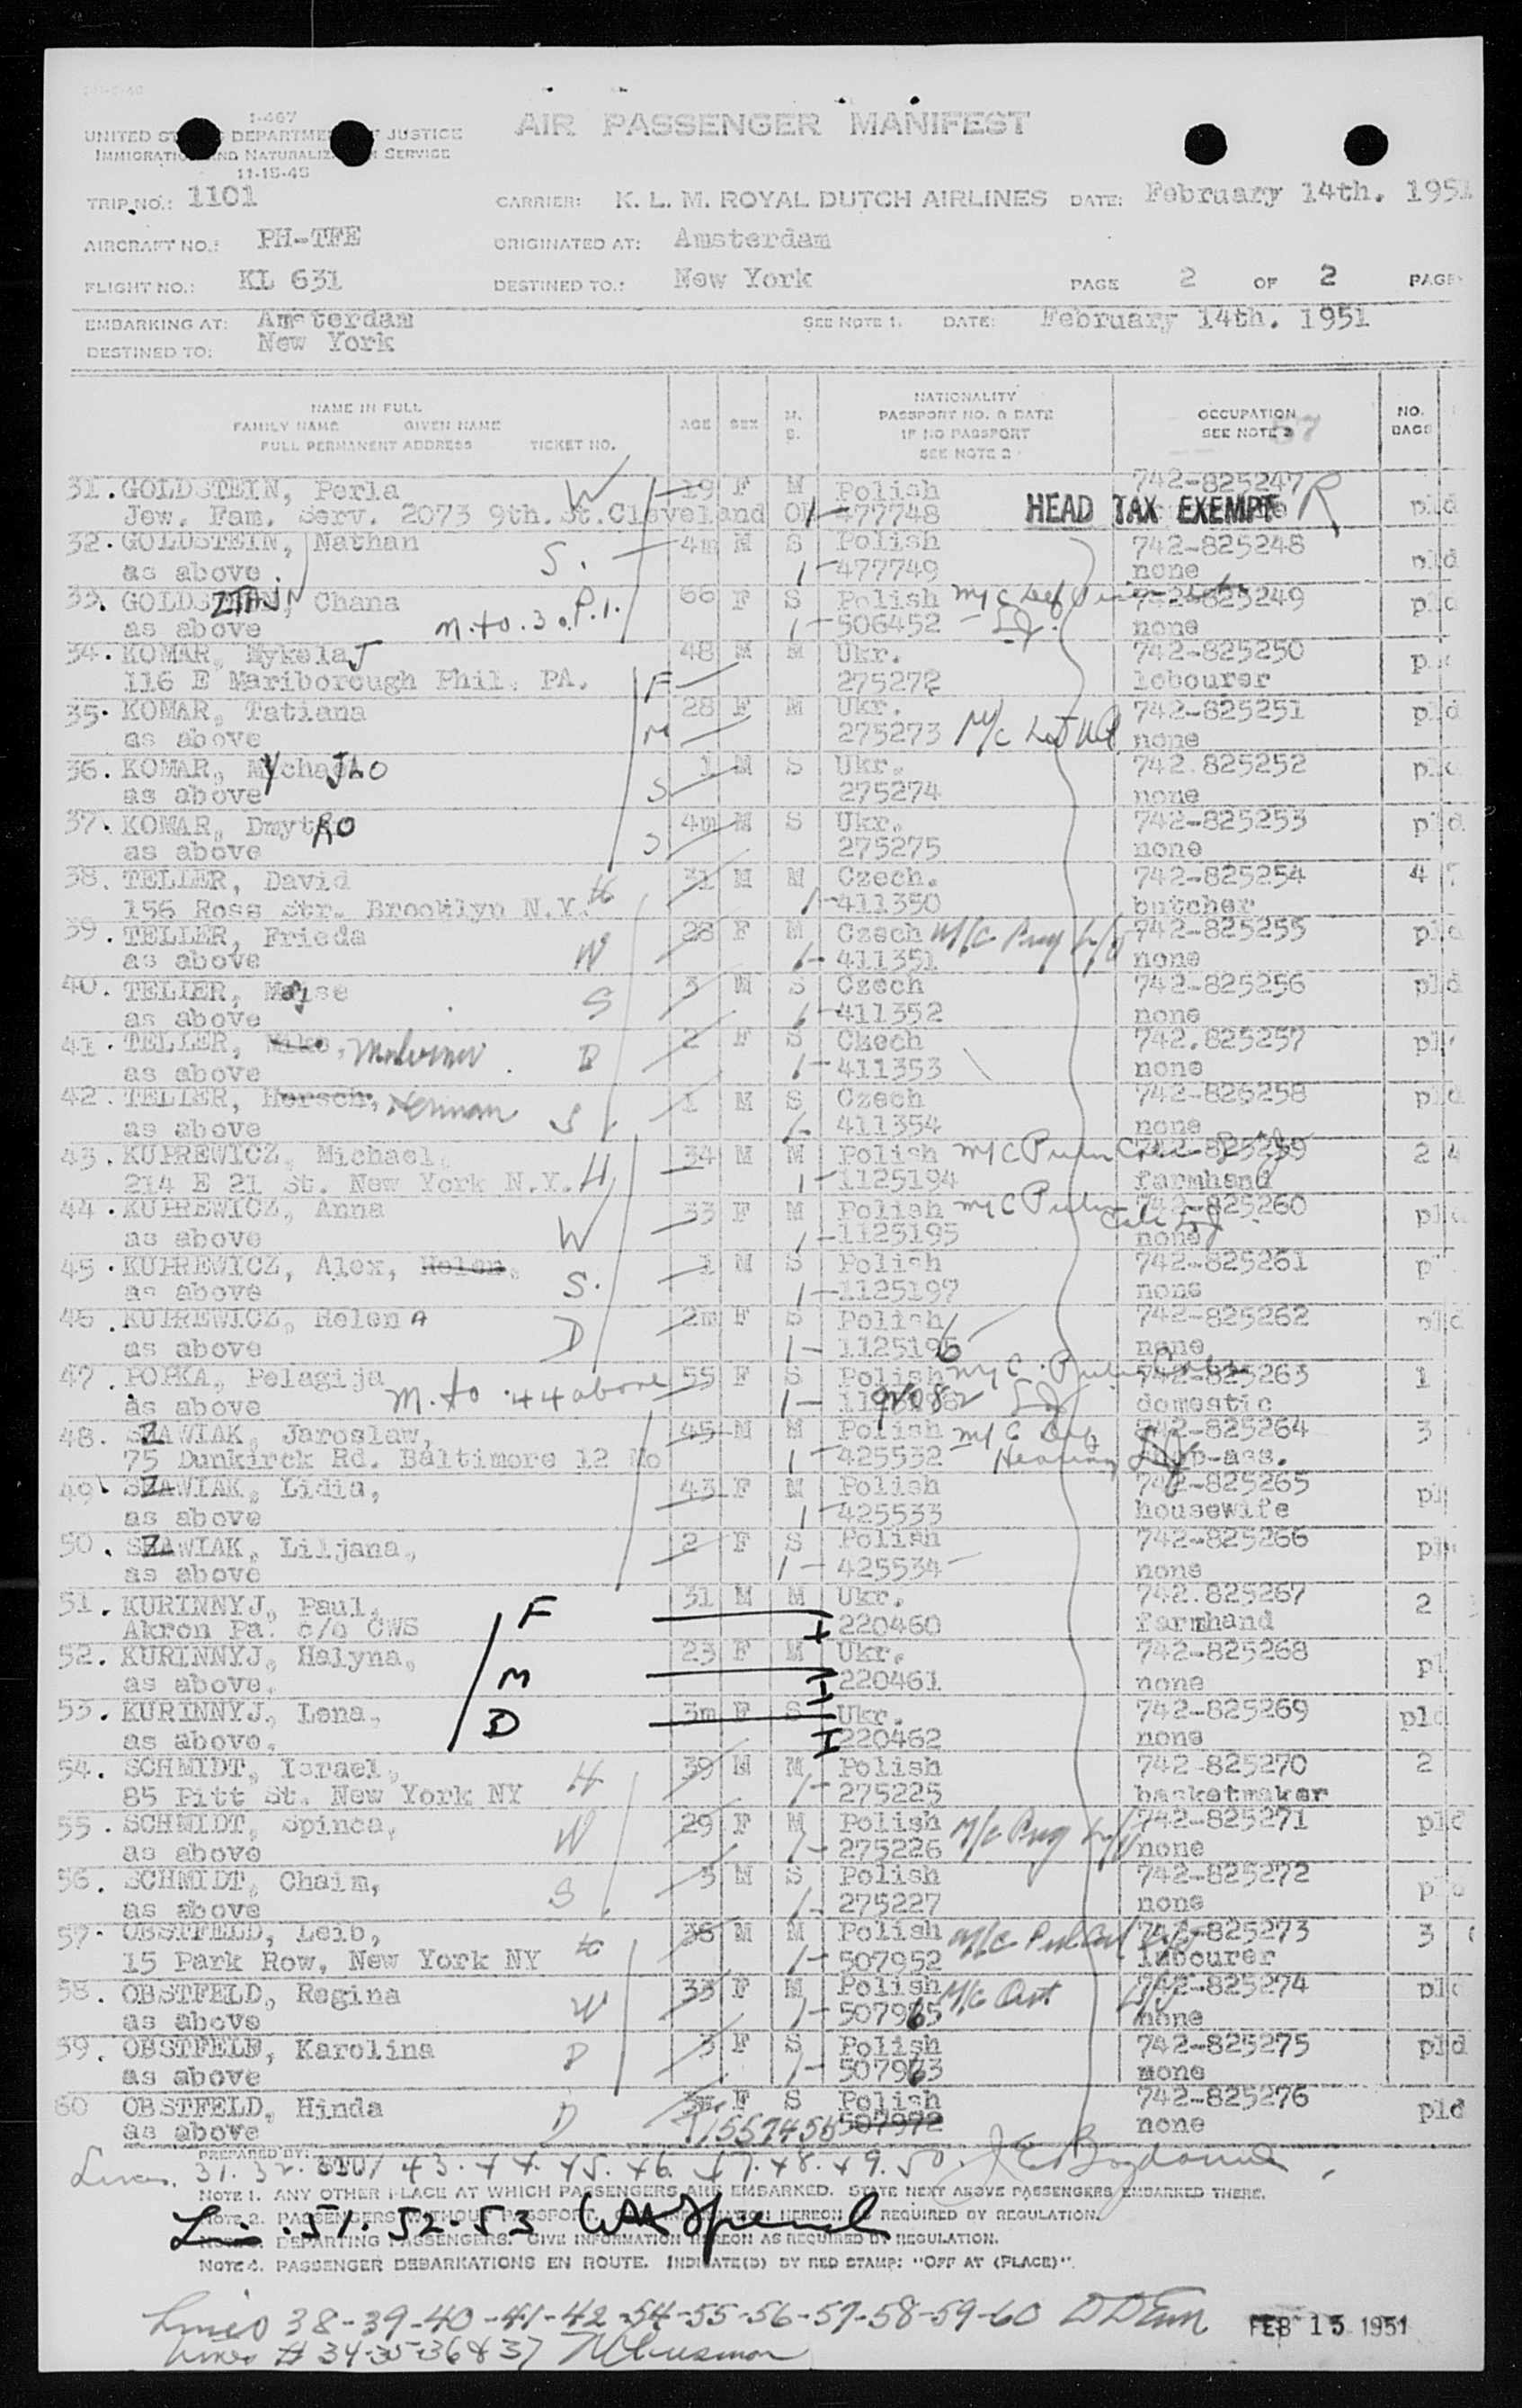 1-467
UNITED STATES DEPARTMENT OF JUSTICE
IMMIGRATION AND NATURALIZATION SERVICE
11-15-45
AIR PASSENGER MANIFEST
TRIP NO.: 1101 CARRIER: K. L. M. ROYAL DUTCH AIRLINES DATE: February 14th. 1951
AIRCRAFT NO.: PH-TFE ORIGINATED AT: Amsterdam
FLIGHT NO.: KL 631 DESTINED TO.: New York PAGE 2 OF 2 PAGE
EMBARKING AT: Amsterdam SEE NOTE 1. DATE: February 14th. 1951
DESTINED TO: New York
NAME IN FULL FAMILY NAME GIVEN NAME FULL PERMANENT ADDRESS TICKET NO. AGE SEX M. S. NATIONALITY PASSPORT NO. & DATE IF NO PASSPORT SEE NOTE 2 OCCUPATION SEE NOTE NO. BAGS
31. GOLDSTEIN, Perla W 19 F M Polish 742-825247 R
Jew. Fam. Serv. 2073 9th. St. Cleveland OH 477748 HEAD TAX EXEMPT pld
32. GOLDSTEIN, Nathan S. 4m M S Polish 742-825248
as above 477749 none pld
33. GOLDSZTAJN, Chana 66 F S Polish 742-825249 pld
as above m. to. 30. P.1. 506452 none
34. KOMAR, Mykola J 48 M M Ukr. 742-825250
116 E Mariborough Phil. PA. F 275272 lebourer
35. KOMAR, Tatiana 28 F M Ukr. 742-825251 pld
as above M 275273 none
36. KOMAR, Mychajlo 1 M S Ukr. 742.825252
as above S 275274 none
37. KOMAR, Dmytro 4m M S Ukr. 742-825253 pld
as above S 275275 none
38. TELLER, David H 31 M M Czech. 742-825254 4
156 Ross Str. Brooklyn N.Y. 411350 butcher
39. TELLER, Frieda 28 F M Czech 742-825255 pld
as above W 411351 none
40. TELLER, Mojse 3 M S Czech 742-825256 pld
as above S 411352 none
41. TELLER, Mike, D 2 F S Czech 742.825257
as above 411353 none
42. TELLER, Hersch, Herman S 1 M S Czech 742-825258 pld
as above 411354 none
43. KUPREWICZ, Michael, 34 M M Polish 742-825259 2 4
214 E 21 St. New York N.Y. H 1125194 farmhand
44. KUPREWICZ, Anna 33 F M Polish 742-825260
as above W 1125195 none
45. KUPREWICZ, Alex, Helen, 1 M S Polish 742-825261
as above S. 1125197 none
46. KUPREWICZ, Helen A 2m F S Polish 742-825262
as above D 1125196 none
47. POPKA, Pelagija 55 F S Polish 742-825263 1
as above m. to .44 above domestic
48. SZAWIAK, Jaroslaw, 45 M M Polish 742-825264 3
75 Dunkirck Rd. Baltimore 12 Mo 425532 Hearing
49. SZAWIAK, Lidia, 43 F M Polish 742-825265
as above 425533 housewife
50. SZAWIAK, Liljana, 2 F S Polish 742-825266
as above 425534 none
51. KURINNYJ, Paul, F 31 M M Ukr. 742.825267 2
Akron Pa. c/o CWS 220460 farmhand
52. KURINNYJ, Halyna, 23 F M Ukr. 742-825268
as above, M 220461 none
53. KURINNYJ, Lena, D 3m F S Ukr. 742-825269 pld
as above, 220462 none
54. SCHMIDT, Israel, H 39 M M Polish 742-825270 2
85 Pitt St. New York NY 275225 basketmaker
55. SCHMIDT, Spinca, W 29 F M Polish 742-825271 pld
as above 275226 none
56. SCHMIDT, Chaim, 3 M S Polish 742-825272
as above S 275227 none
57. OBSTFELD, Leib, M M Polish 742-825273 3
15 Park Row, New York NY 507952 labourer
58. OBSTFELD, Regina 33 F M Polish 742-825274
as above W 507965 none
59. OBSTFELD, Karolina D 3 F S Polish 742-825275 pld
as above 507963 none
60 OBSTFELD, Hinda D F S Polish 742-825276 pld
as above 507972 none
PREPARED BY:
Lines. 31. 32. 43. 44. 45. 46. 47. 48. 49. 50.
NOTE 1. ANY OTHER PLACE AT WHICH PASSENGERS ARE EMBARKED. STATE NEXT ABOVE PASSENGERS EMBARKED THERE.
NOTE 2. PASSENGERS WITHOUT PASSPORT. GIVE INFORMATION HEREON AS REQUIRED BY REGULATION.
51. 52-53
DEPARTING PASSENGERS. GIVE INFORMATION HEREON AS REQUIRED BY REGULATION.
NOTE 4. PASSENGER DEBARKATIONS EN ROUTE. INDICATE(D) BY RED STAMP: "OFF AT (PLACE)".
Lines 38-39-40-41-42-54-55-56-57-58-59-60 FEB 15 1951
Lines # 34-35-36 & 37